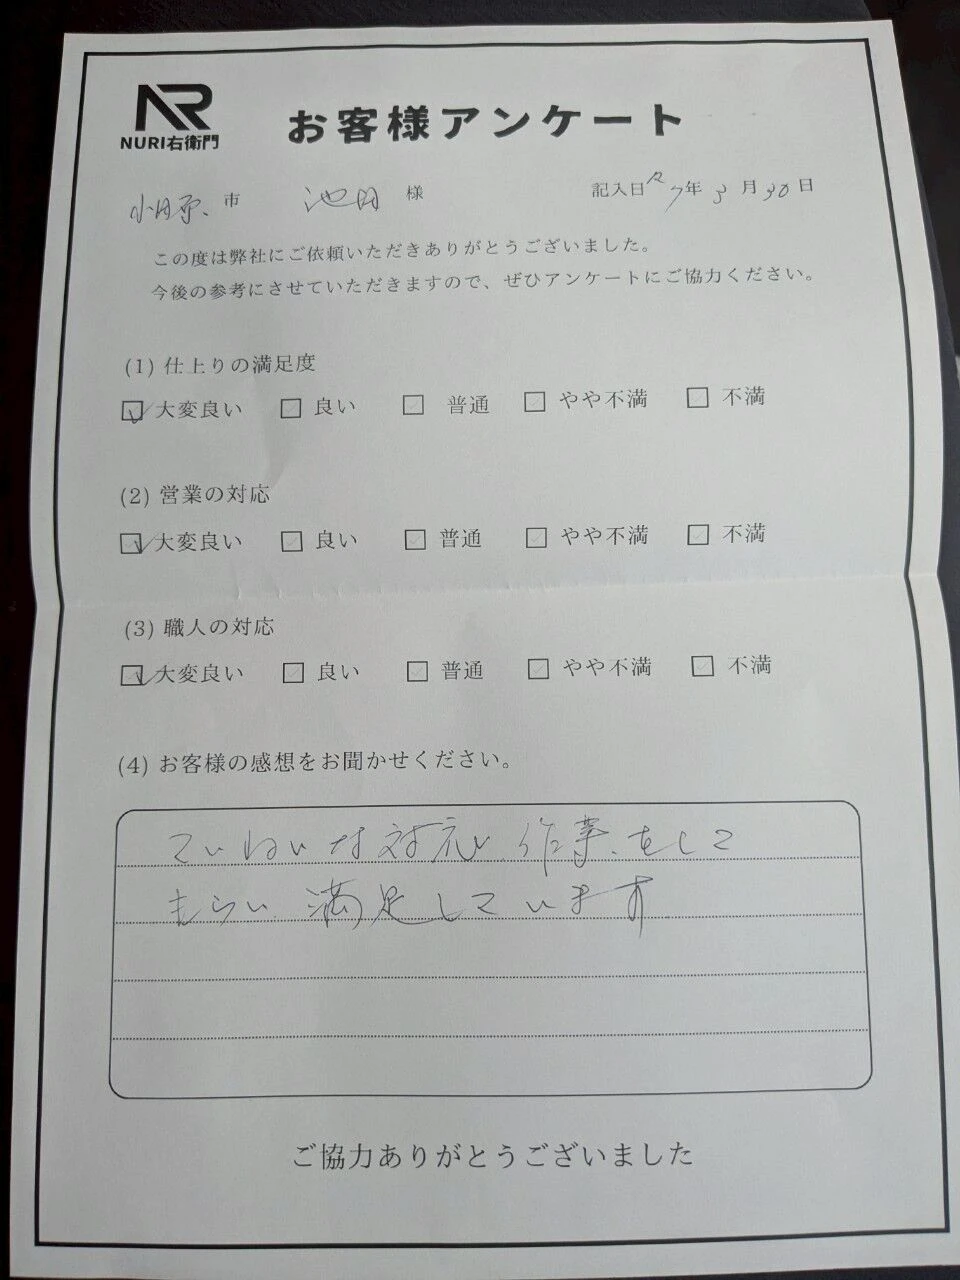 NR
NURI右衛門
お客様アンケート
小田原市 池田 様 記入日 R7年3月30日
この度は弊社にご依頼いただきありがとうございました。
今後の参考にさせていただきますので、ぜひアンケートにご協力ください。
(1) 仕上りの満足度
大変良い 良い 普通 やや不満 不満
(2) 営業の対応
大変良い 良い 普通 やや不満 不満
(3) 職人の対応
大変良い 良い 普通 やや不満 不満
(4) お客様の感想をお聞かせください。
ていねいな対応、作業をして
もらい満足しています
ご協力ありがとうございました